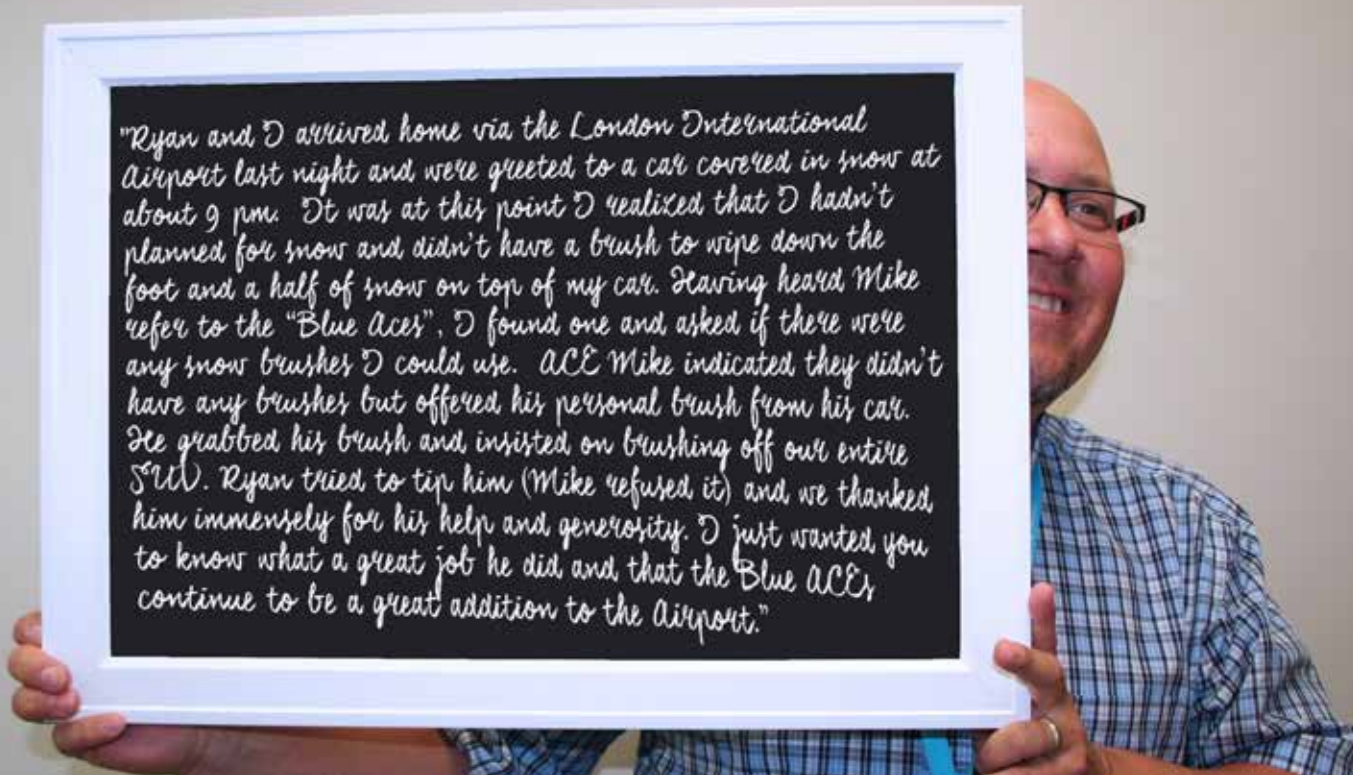 "Ryan and I arrived home via the London International
Airport last night and were greeted to a car covered in snow at
about 9 pm. It was at this point I realized that I hadn't
planned for snow and didn't have a brush to wipe down the
foot and a half of snow on top of my car. Having heard Mike
refer to the "Blue Aces", I found one and asked if there were
any snow brushes I could use. ACE Mike indicated they didn't
have any brushes but offered his personal brush from his car.
He grabbed his brush and insisted on brushing off our entire
SUV. Ryan tried to tip him (Mike refused it) and we thanked
him immensely for his help and generosity. I just wanted you
to know what a great job he did and that the Blue ACEs
continue to be a great addition to the Airport."